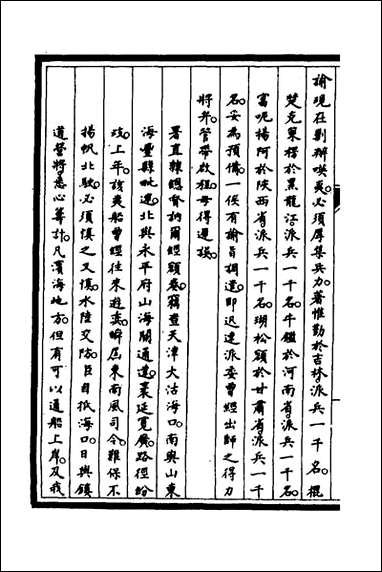 諭現在剿辦㗸夷必須厚集兵力著惟勤於吉林派兵一千名棍
楚克策楞於黑龍江派兵一千名牛鑑於河南省派兵一千名
富呢揚阿於陝西省派兵一千名瑚松額於甘肅省派兵一千
名妥為預備一俟有諭旨調遣即迅速派委曾經出師之得力
將弁管帶啟程毋得遲誤
署直隸總督訥爾經額奏竊查天津大沽海口南與山東
海豐縣毗連北與永平府山海關通連袤延寬廣路徑紛
歧上年該夷船曾經往來遊奕瞬屆東南風司令難保不
揚帆北駛必須慎之又慎水陸交防臣自抵海口日與鎮
道營將悉心籌計凡濱海地方但有可以通船上岸及我